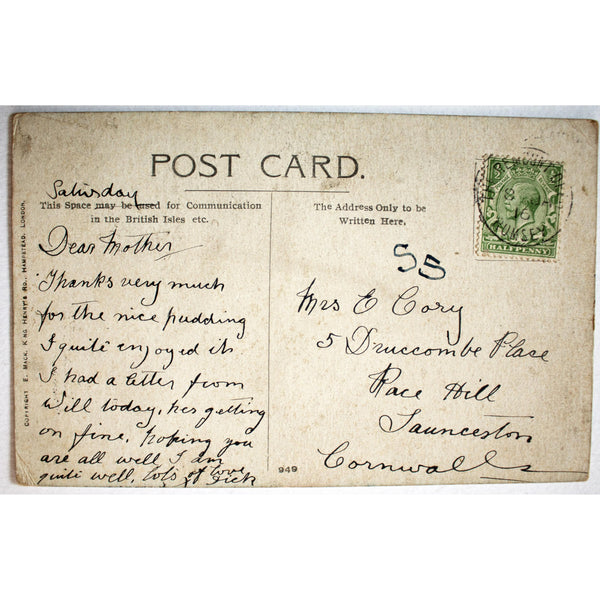 POST CARD.
Saturday
This Space may be used for Communication
in the British Isles etc.
The Address Only to be
Written Here.
Dear Mother
Thanks very much
for the nice pudding
I quite enjoyed it
I had a letter from
Will today, hes getting
on fine, hoping you
are all well I am
quite well, lots of love
Dick
55
Mrs E Cory
5 Druccombe Place
Race Hill
Launceston
Cornwall
949
COPYRIGHT E. MACK, KING HENRY'S RD., HAMPSTEAD, LONDON.
HALFPENNY
ROMSEY